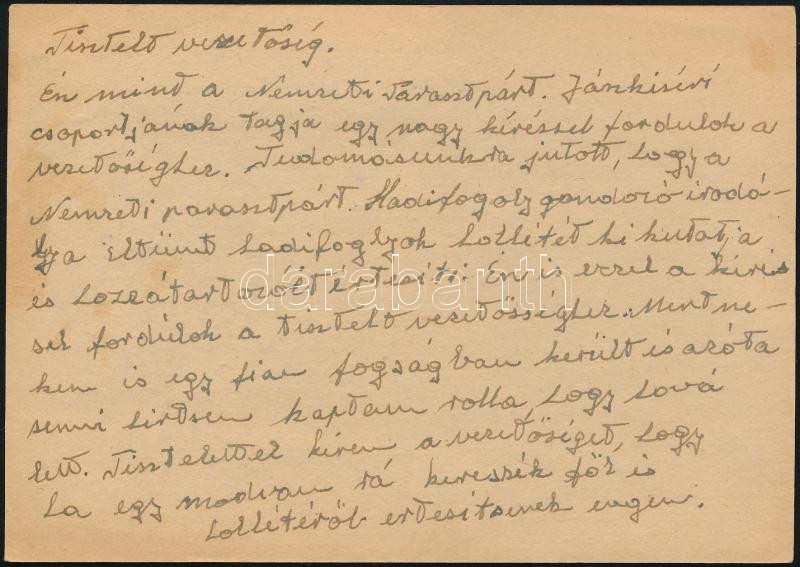 Tisztelt vezetőség.
Én mind a Nemzeti Parasztpárt. Jászkiséri
csoportjának tagja egy nagy kéréssel fordulok a
vezetőséghez. Tudomásunkra jutott, hogy a
Nemzeti parasztpárt. Hadifogoly gondozó irodá-
lya eltünt hadifoglyok hollétét ki kutatja
és hozzátartozóit értesíti. Én is ezzel a kérés
sel fordúlok a tisztelt vezetősséghez. Mert ne-
kem is egy fiam fogságban került és azóta
semmi hirtsem kaptam rolla hogy hová
lett. Tisztelettel kérem a vezetőséget, hogy
ha egy modvan rá keressék föl és
hollétéröl ertesítsenek engem.
darabanth